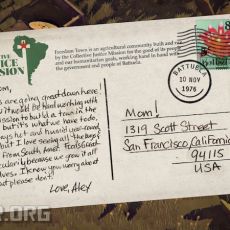 TIVE
ICE
SSION
Freedom Town is an agricultural community built and run
by the Collective Justice Mission for the good of its people
and our humanitarian goals, working hand in hand with
the government and people of Battuela.
8
BATTUELA
10 NOV
1976
om,
are going great down here!
it would be hard working with
mission to build a town in the
but it's what we have to do.
days hot and humid year-round,
but I love seeing all the
from South America. Food's good
particularly because we grow it all
ourselves. I know you worry about
but please don't!
Love, Alex
Mom!
1319 Scott Street
San Francisco, California
94115
USA
R.ORG